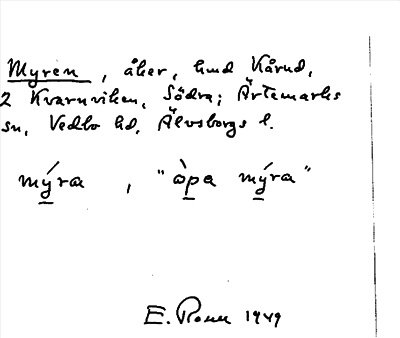 Myren, åker, hmd Kårud,
2 Kvarnviken, Södra; Ärtemarks
sn, Vedbo hd, Älvsborgs l.
mýra, "òpa mýra"
E. 1949